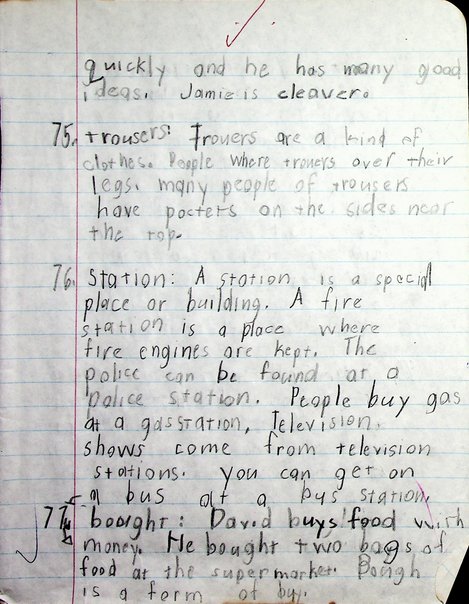 quickly and he has many good
ideas. Jamie is cleaver.
75. trousers: Trouers are a kind of
clothes. People where trouers over their
legs. many people of trousers
have pocters on the sides near
the top.
76. Station: A station is a special
place or building. A fire
station is a place where
fire engines are kept. The
police can be found at a
police station. People buy gas
at a gasstation, Television.
shows come from television
stations. you can get on
a bus at a bus station.
77. boought: David buys food with
money. He bought two bags of
food at the supermarket. Bough
is a form of buy.